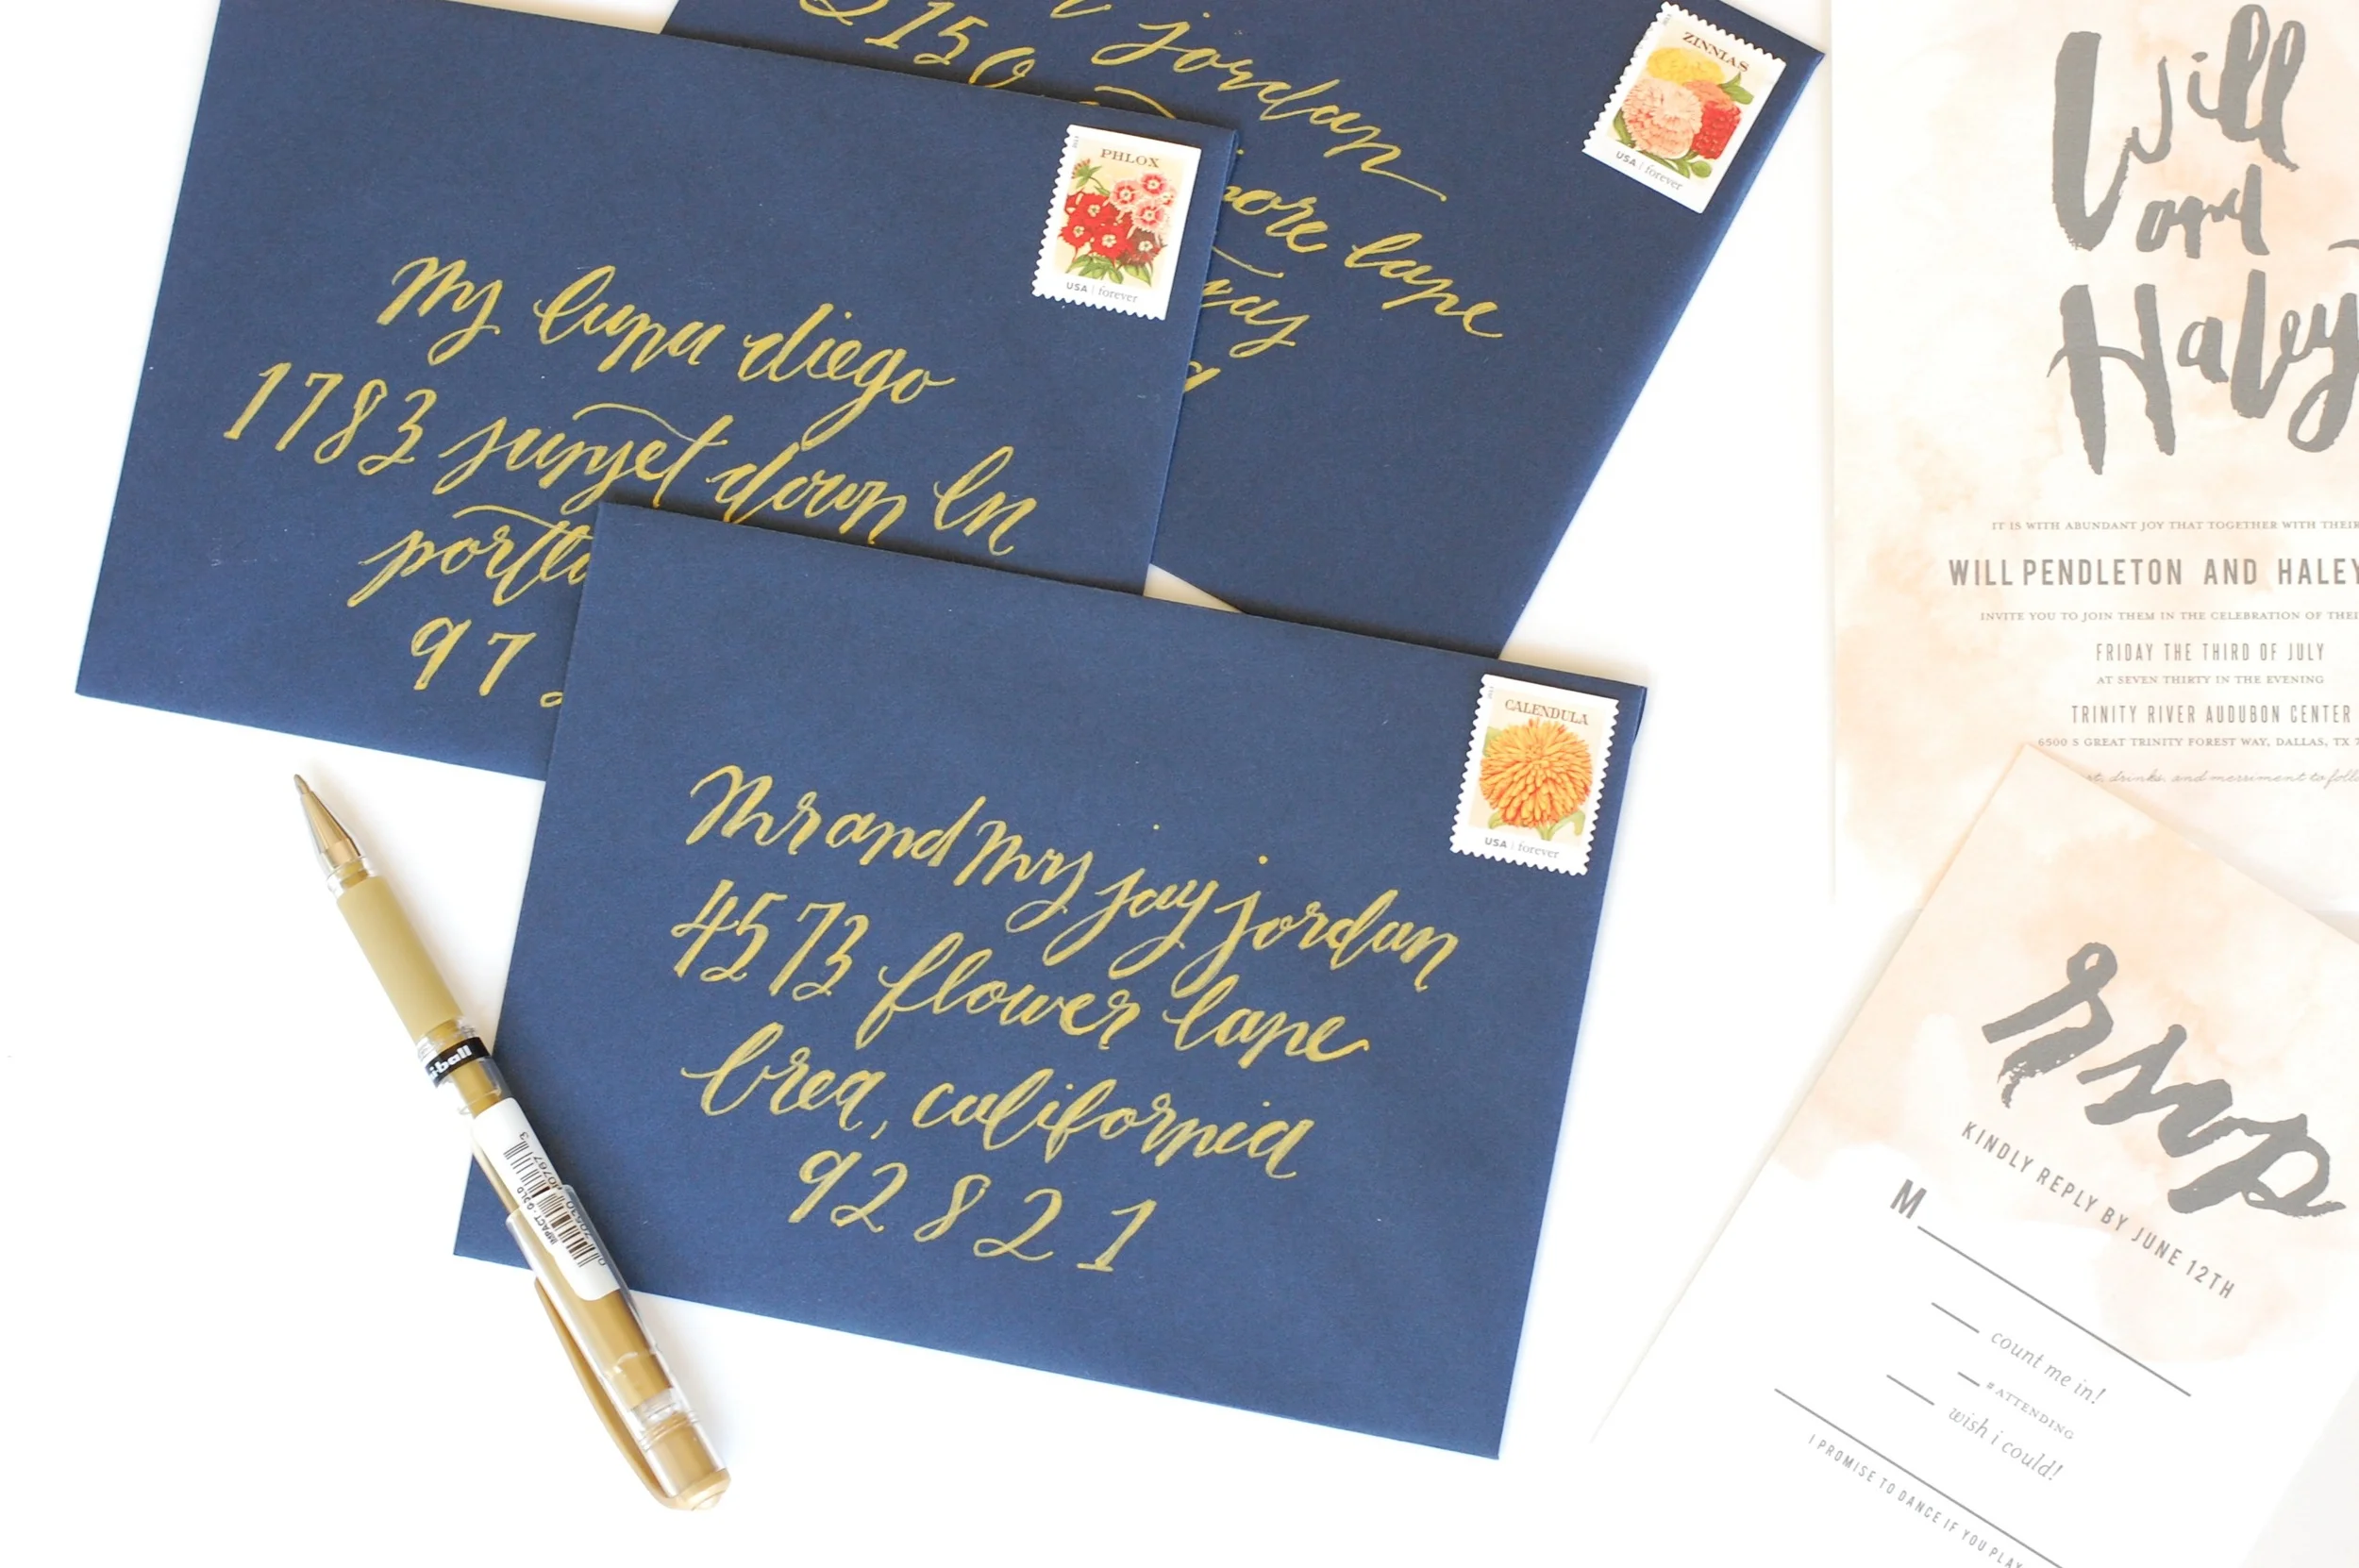 jordan
2150
lane
ZINNIAS
USA forever
PHLOX
USA forever
Ms luna diego
1783 sunset down ln
97
CALENDULA
USA forever
Mr and Mrs jay jordan
4573 flower lane
brea, california
92821
Will
and
Haley
IT IS WITH ABUNDANT JOY THAT TOGETHER WITH THEIR
WILL PENDLETON AND HALEY
INVITE YOU TO JOIN THEM IN THE CELEBRATION OF THEIR
FRIDAY THE THIRD OF JULY
AT SEVEN THIRTY IN THE EVENING
TRINITY RIVER AUDUBON CENTER
6500 S GREAT TRINITY FOREST WAY, DALLAS, TX
drinks, and merriment to follow
rsvp
KINDLY REPLY BY JUNE 12TH
M
count me in!
# ATTENDING
wish i could!
I PROMISE TO DANCE IF YOU PLAY
ball
IMPACT · GOLD